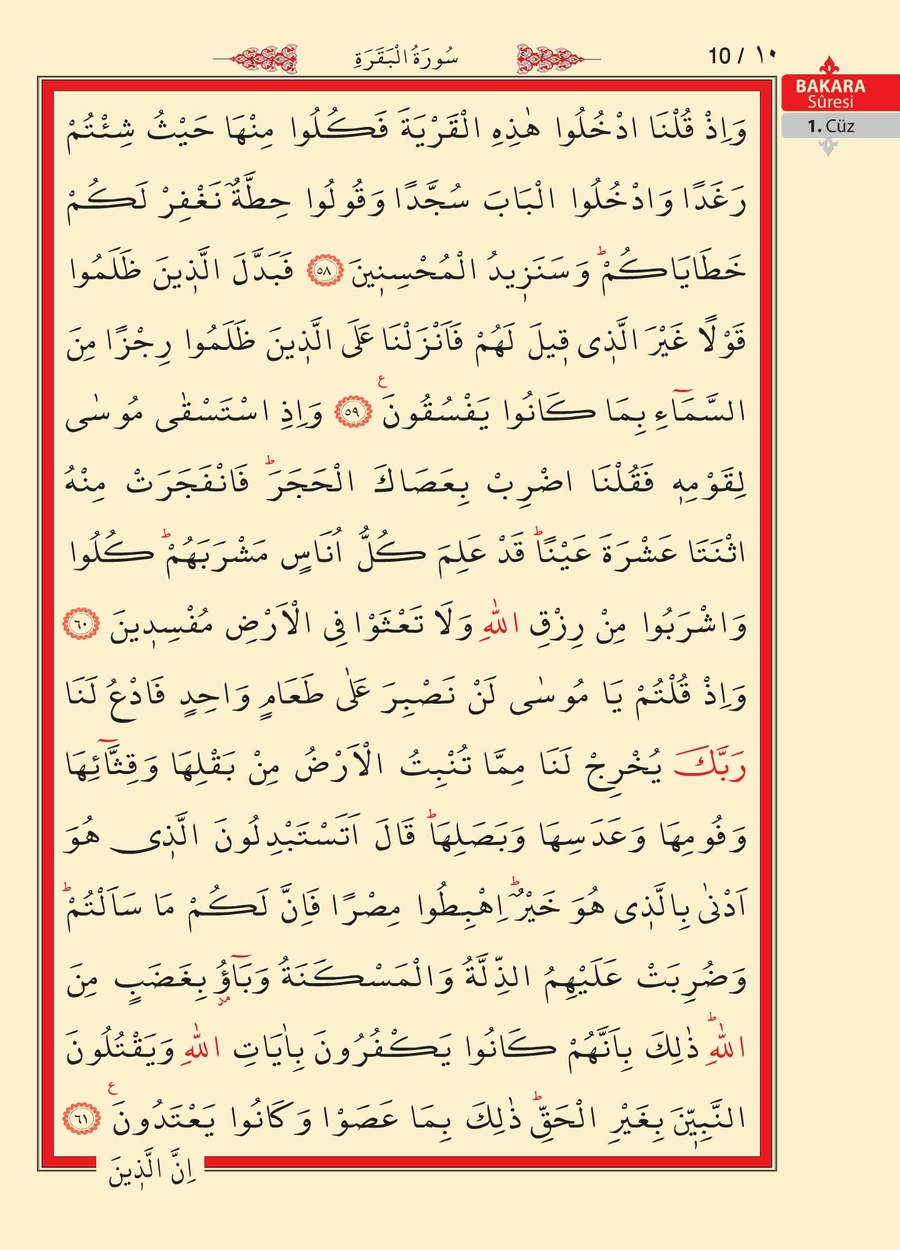 سُورَةُ الْبَقَرَةِ
10 / ١٠
BAKARA
Sûresi
1. Cüz
وَاِذْ قُلْنَا ادْخُلُوا هٰذِهِ الْقَرْيَةَ فَكُلُوا مِنْهَا حَيْثُ شِئْتُمْ
رَغَدًا وَادْخُلُوا الْبَابَ سُجَّدًا وَقُولُوا حِطَّةٌ نَغْفِرْ لَكُمْ
خَطَايَاكُمْۜ وَسَنَزٖيدُ الْمُحْسِنٖينَ ﴿٥٨﴾ فَبَدَّلَ الَّذٖينَ ظَلَمُوا
قَوْلًا غَيْرَ الَّذٖى قٖيلَ لَهُمْ فَاَنْزَلْنَا عَلَى الَّذٖينَ ظَلَمُوا رِجْزًا مِنَ
السَّمَٓاءِ بِمَا كَانُوا يَفْسُقُونَ ع ﴿٥٩﴾ وَاِذِ اسْتَسْقٰى مُوسٰى
لِقَوْمِهٖ فَقُلْنَا اضْرِبْ بِعَصَاكَ الْحَجَرَؕ فَانْفَجَرَتْ مِنْهُ
اثْنَتَا عَشْرَةَ عَيْنًاؕ قَدْ عَلِمَ كُلُّ اُنَاسٍ مَشْرَبَهُمْؕ كُلُوا
وَاشْرَبُوا مِنْ رِزْقِ اللّٰهِ وَلَا تَعْثَوْا فِى الْاَرْضِ مُفْسِدٖينَ ﴿٦٠﴾
وَاِذْ قُلْتُمْ يَا مُوسٰى لَنْ نَصْبِرَ عَلٰى طَعَامٍ وَاحِدٍ فَادْعُ لَنَا
رَبَّكَ يُخْرِجْ لَنَا مِمَّا تُنْبِتُ الْاَرْضُ مِنْ بَقْلِهَا وَقِثَّٓائِهَا
وَفُومِهَا وَعَدَسِهَا وَبَصَلِهَاؕ قَالَ اَتَسْتَبْدِلُونَ الَّذٖى هُوَ
اَدْنٰى بِالَّذٖى هُوَ خَيْرٌؕ اِهْبِطُوا مِصْرًا فَاِنَّ لَكُمْ مَا سَاَلْتُمْؕ
وَضُرِبَتْ عَلَيْهِمُ الذِّلَّةُ وَالْمَسْكَنَةُ وَبَٓاؤُ بِغَضَبٍ مِنَ
اللّٰهِؕ ذٰلِكَ بِاَنَّهُمْ كَانُوا يَكْفُرُونَ بِاٰيَاتِ اللّٰهِ وَيَقْتُلُونَ
النَّبِيّٖنَ بِغَيْرِ الْحَقِّؕ ذٰلِكَ بِمَا عَصَوْا وَكَانُوا يَعْتَدُونَ ع ﴿٦١﴾
اِنَّ الَّذٖينَ